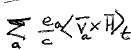 ∑ₐ eₐ/c ⟨v̄ₐ × H̄⟩ₜ